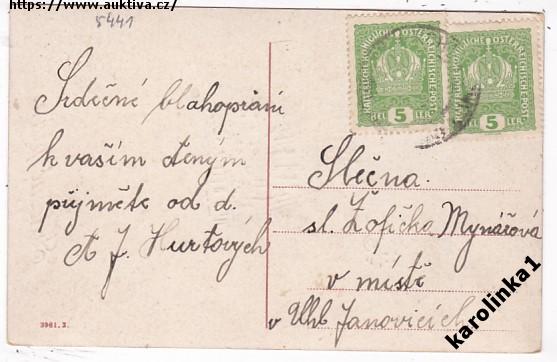 https://www.auktiva.cz/
5441
Srdečné blahopřání
k vaším cteným
přijměte od d.
A J. Hurtových
3961.3.
KAISERLICHE KÖNIGLICHE ÖSTERREICHISCHE POST
5
HEL LER
KAISERLICHE KÖNIGLICHE ÖSTERREICHISCHE POST
5
LER
Slečna
sl. Žofička Mynářová
v místě
v Uhl Janovicích
karolinka1